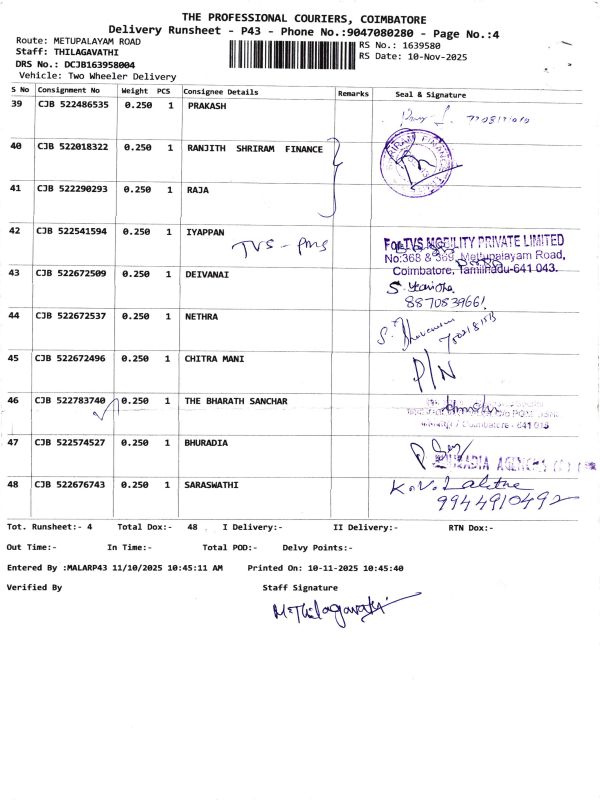 THE PROFESSIONAL COURIERS, COIMBATORE
Delivery Runsheet - P43 - Phone No.:9047080280 - Page No.:4
Route: METUPALAYAM ROAD
RS No.: 1639580
Staff: THILAGAVATHI
RS Date: 10-Nov-2025
DRS No.: DCJB163958004
Vehicle: Two Wheeler Delivery
S No Consignment No Weight PCS Consignee Details Remarks Seal & Signature
39 CJB 522486535 0.250 1 PRAKASH
40 CJB 522018322 0.250 1 RANJITH SHRIRAM FINANCE
41 CJB 522290293 0.250 1 RAJA
42 CJB 522541594 0.250 1 IYAPPAN
TVS - PMS
For TVS MOBILITY PRIVATE LIMITED
No:368 & 369, Mettupalayam Road,
Coimbatore, Tamilnadu-641 043.
43 CJB 522672509 0.250 1 DEIVANAI
44 CJB 522672537 0.250 1 NETHRA
45 CJB 522672496 0.250 1 CHITRA MANI
P/N
46 CJB 522783740 0.250 1 THE BHARATH SANCHAR
47 CJB 522574527 0.250 1 BHURADIA
48 CJB 522676743 0.250 1 SARASWATHI
K.V. Lalitha
9944910492
Tot. Runsheet:- 4 Total Dox:- 48 I Delivery:- II Delivery:- RTN Dox:-
Out Time:- In Time:- Total POD:- Delvy Points:-
Entered By :MALARP43 11/10/2025 10:45:11 AM Printed On: 10-11-2025 10:45:40
Verified By Staff Signature
M.Thilagavathi